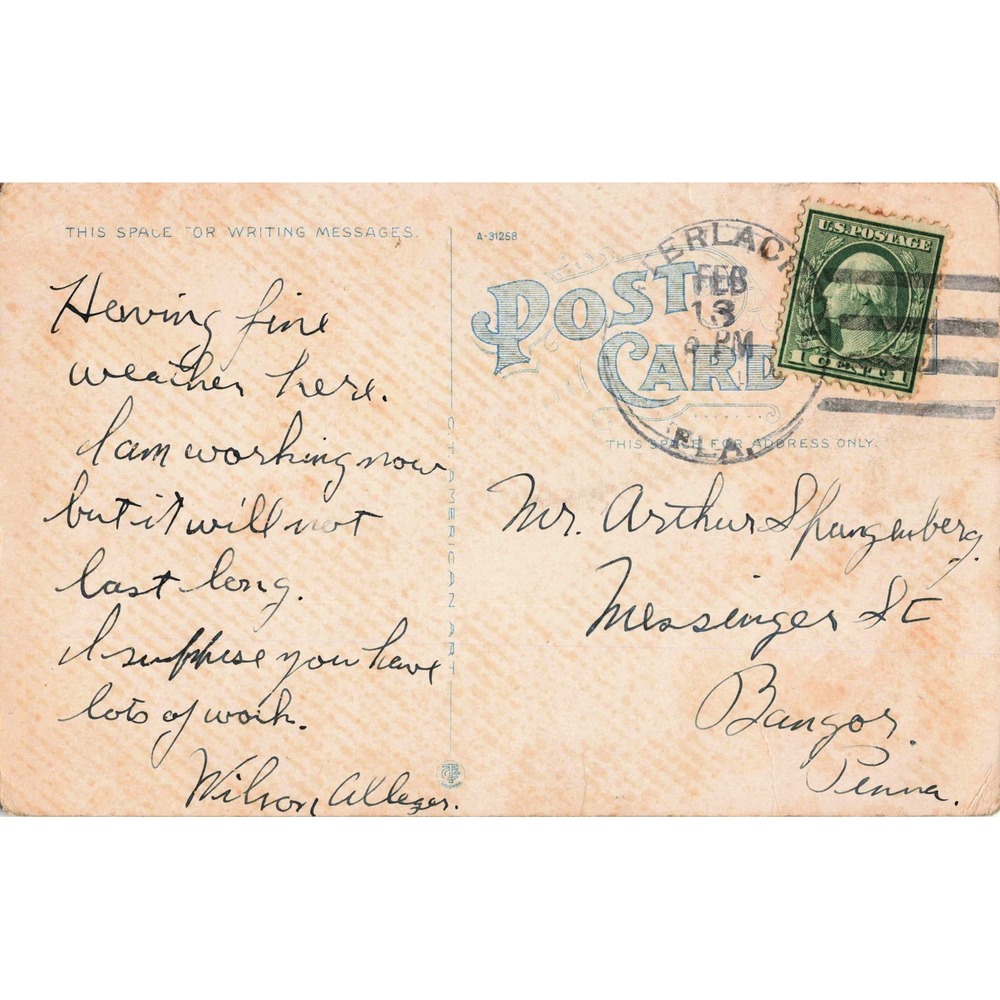 THIS SPACE FOR WRITING MESSAGES.
Having fine
weather here.
I am working now
but it will not
last long.
I suppose you have
lots of work.
Wilson Alleger.
C.T. AMERICAN ART
A-31258
POST
CARD
THIS SPACE FOR ADDRESS ONLY.
TERLACH
FEB
13
PM
FLA.
U.S. POSTAGE
1 CENT 1
Mr. Arthur Spangenberg,
Messinger St
Bangor,
Penna.